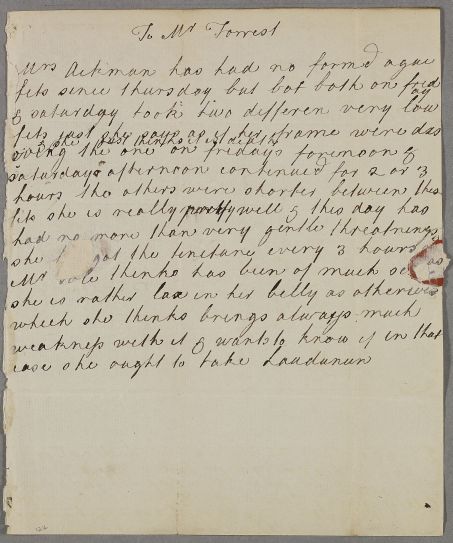 To Mr Torrest
Mrs Aikman has had no formd ague
fits since thursday but bot both on frid
ay
& saturday took two differen very low
fits just she says as if her frame were dis
she just thinks it is death
oving the one on fridays forenoon &
saturdays afternoon continued for 2 or 3
hours the others were shorter between this
fits she is really pretty well & this day has
had no more than very gentle threatnings
she got the tincture every 3 hours as
Mr thinks has been of much
she is rather lax in her belly as otherwise
which she thinks brings always much
weakness with it & wants to know if in that
case she ought to take Laudunun